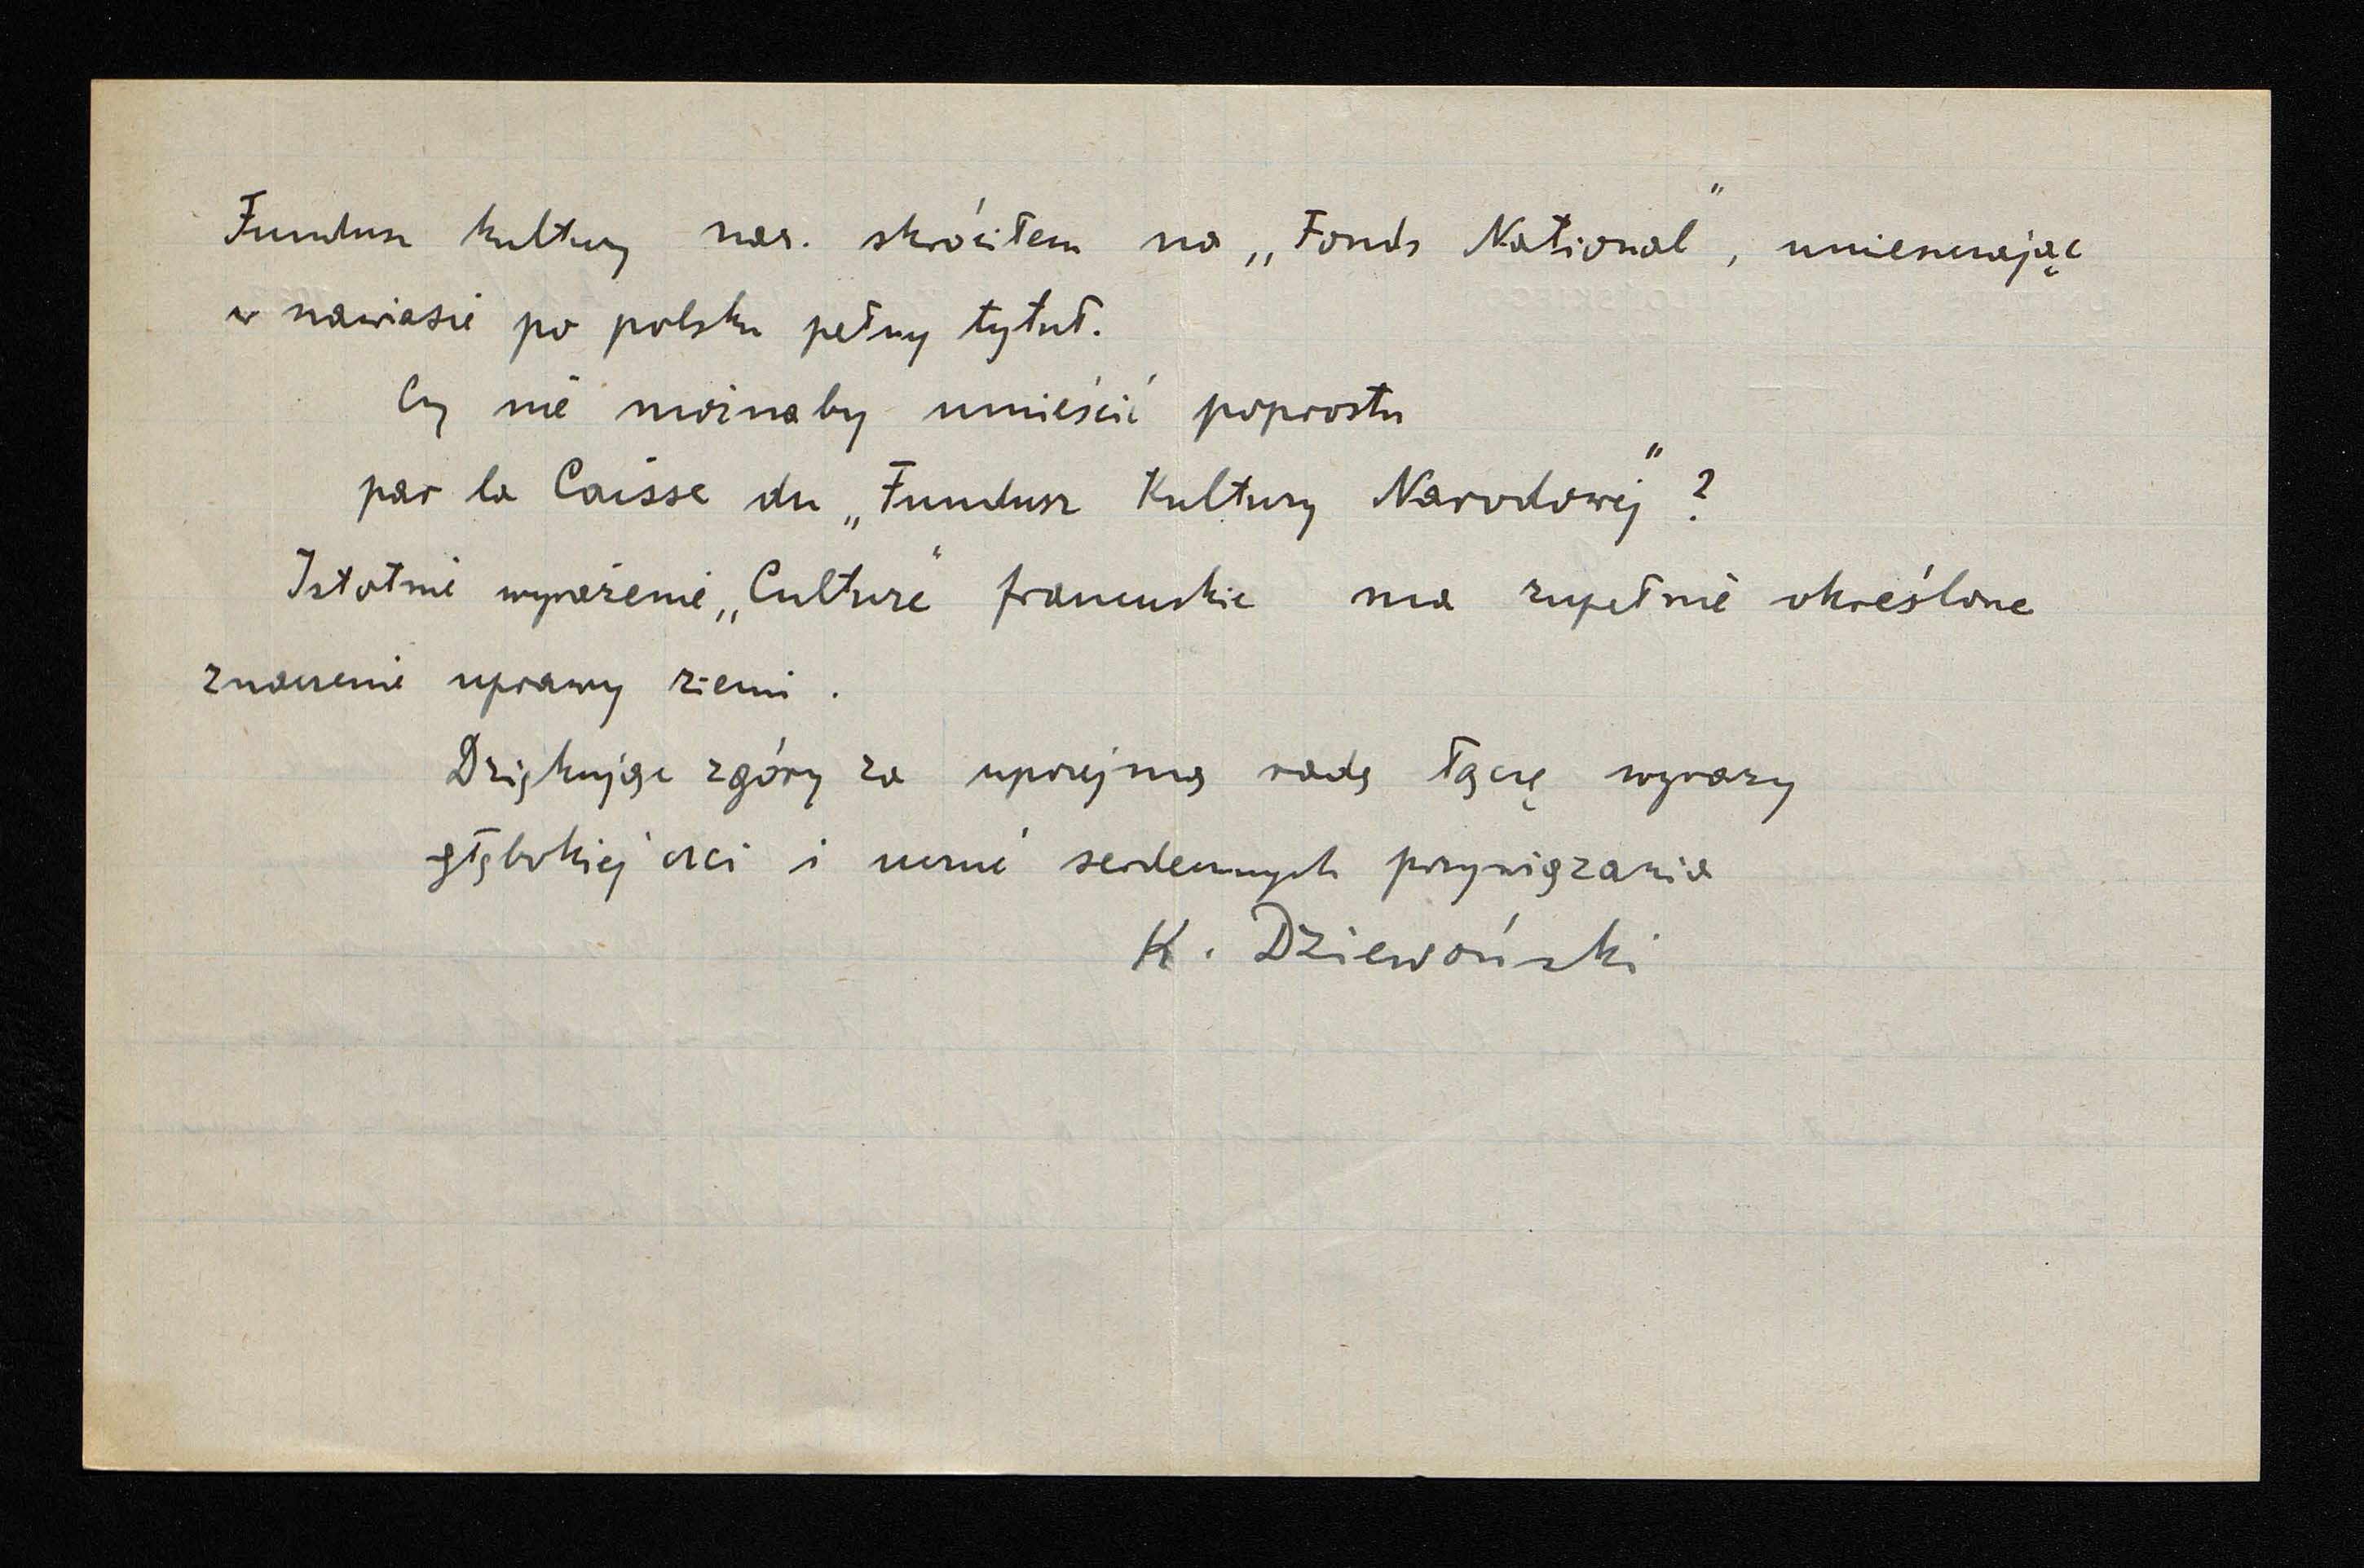 Fundusz kultury nar. skróciłem na „Fonds National”, umieszczając
w nawiasie po polsku pełny tytuł.
Czy nie możnaby umieścić poprostu
par la Caisse du „Fundusz Kultury Narodowej” ?
Istotnie wyrażenie „Culture” francuskie ma zupełnie określone
znaczenie uprawy ziemi .
Dziękując zgóry za uprzejmą radę łączę wyrazy
głębokiej czci i serdecznych przywiązania
K. Dziewoński